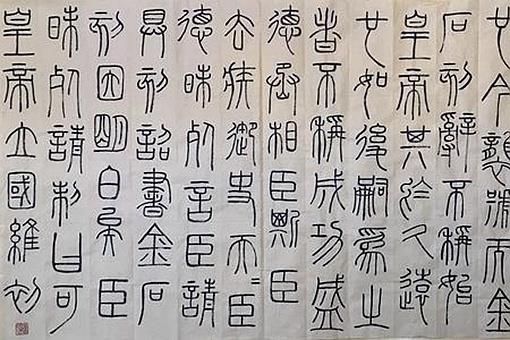 也今襲號而金
石刻辭不稱始
皇帝其於久遠
也如後嗣為之
者不稱成功盛
德丞相臣斯臣
去疾御史夫=臣
德昧死言臣請
具刻詔書金石
刻因明白矣臣
昧死請制曰可
皇帝立國維初